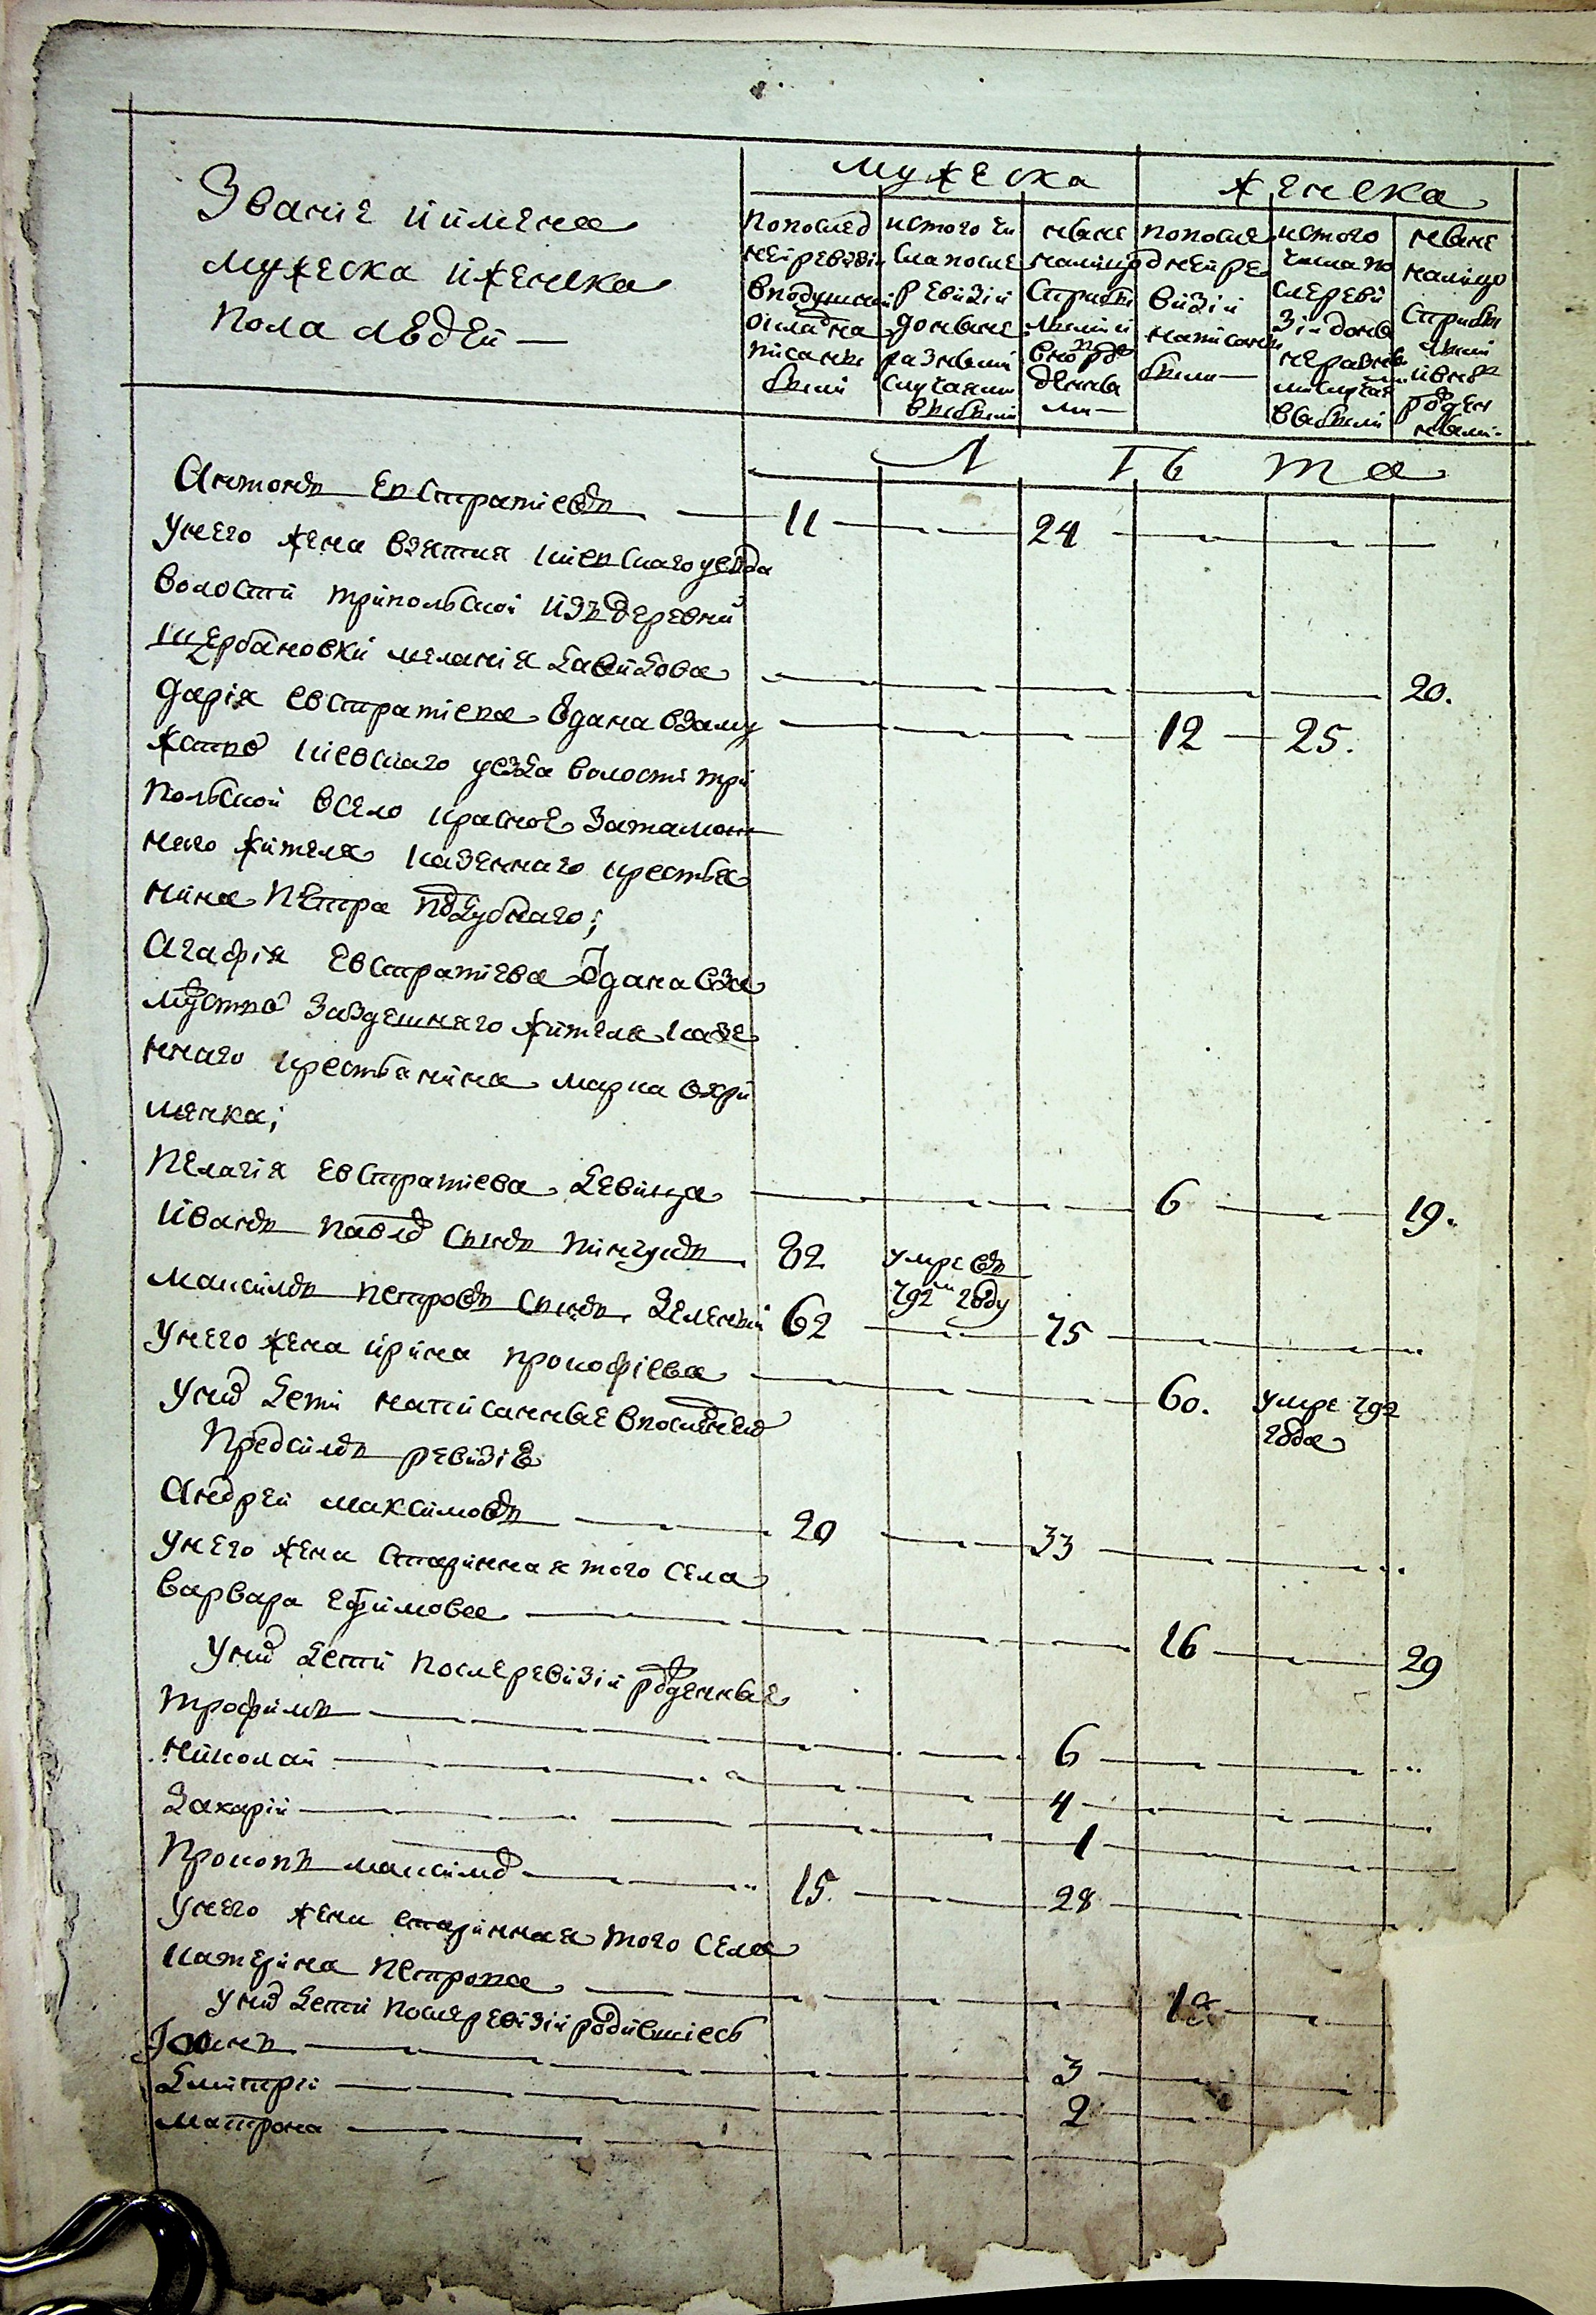 Званіе иимена
мужеска иженска
пола людей —
мужеска
женска
попослед
ней ревизіи
вподушной
окладна
писаны
были
истого чи
сла после
ревизіи
доныне
разными
случаями
выбыли
ныне
налицо
Сприбы
лыми и
вновь рож
денны
ми —
попосле
дней ре
визіи
написаны
были —
истого
числа по
слереви
зіи доны
не разны
ми случая
выбыли
ныне
налицо
Сприбы
лыми
ивнов
рожден
ными.
Л Ѣ та
Антонъ Евстратіевъ — 11 — 24
Унего жена взятия кіевскаго уезда
волости трипольской изъ деревни
щербановки меланія давидова — 20.
Дарія евстратіева вдана взаму
12 — 25.
жство кіевскаго уезда волости три
польской всело красное затамош
няго жителя казеннаго крестья
нина петра подубнаго;
Агафія евстратіева вдана вза
мужство заздешняго жителя казе
ннаго крестьянина марка охри
менка;
Пелагія евстратіева девица — 6 — 19.
Иванъ павлов сынъ пинчукъ 82 умре въ
792м году
максимъ петровъ сынъ зеленый 62 — 75
Унего жена ирина прокофіева — 60. умре 792
года
Уних дети написанные впоследней
Предсимъ ревизіи
Андрей максимовъ — 20 — 33
Унего жена старинная того села
варвара ефимова — 16 — 29
Уних дети послеревизіи рожденные
трофимъ — 6
николай — 4
Захарій — 1
Прокопъ максимов — 15. — 28
Унего жена старинная того села
катерина петрова — 1
уних дети послеревизіи родившіесь
Іоаннъ — 3
Дмитрій — 2
матрона —